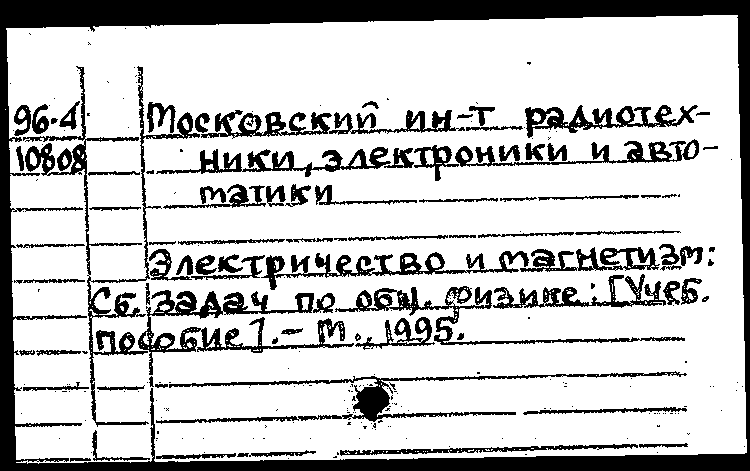 96-4 Московский ин-т радиотех-
10808 ники, электроники и авто-
матики
Электричество и магнетизм:
Сб. задач по общ. физике: [Учеб.
пособие]. - М., 1995.